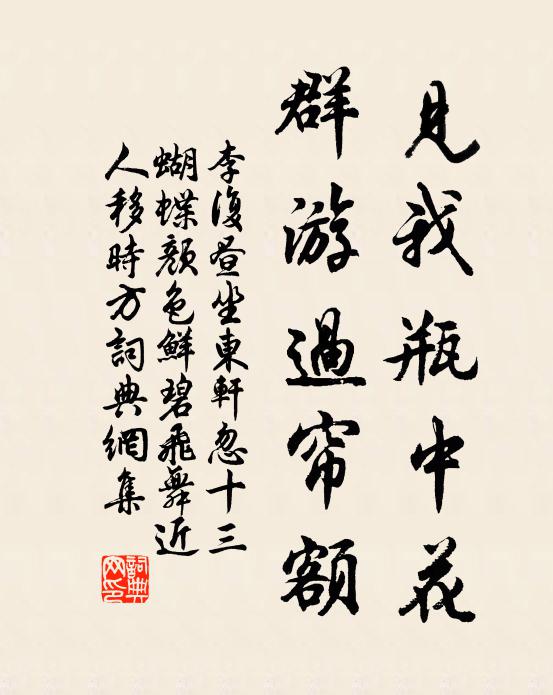 見我瓶中花
群游過帘額
李復昼坐東軒忽十三
蝴蝶顏色鮮碧飛舞近
人移時方詞典網集
詞典
网印